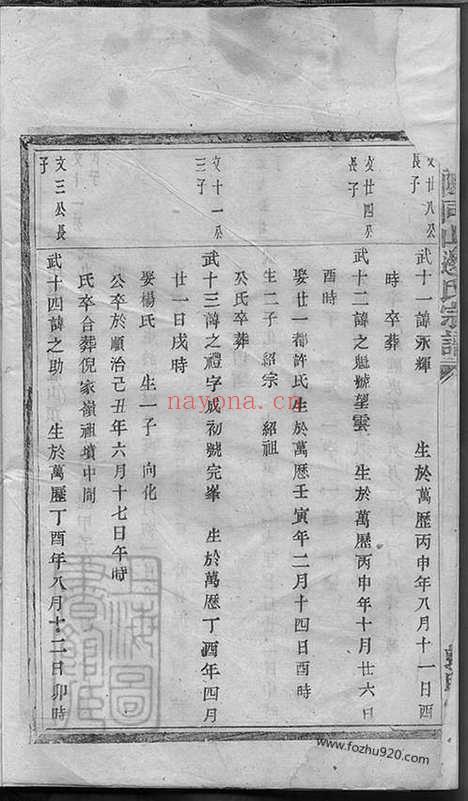 文廿八公長子
武十一諱永輝 生於萬歷丙申年八月十一日酉
時 卒葬
文廿四公長子
武十二諱之魁號望雲 生於萬歷丙申年十月廿六日
酉時
娶廿一都許氏 生於萬歷壬寅年二月十四日酉時
生二子 紹宗 紹祖
癸氏卒葬
文十一公三子
武十三諱之禮字成初號完峯 生於萬歷丁酉年四月
廿一日戌時
娶楊氏 生一子 向化
公卒於順治己丑年六月十七日午時
氏卒合葬倪家嶺祖墳中間
文三公長子
武十四諱之助 生於萬歷丁酉年八月十二日卯時
氏宗譜
上海圖書館藏
nayona.cn
www.fozhu920.com